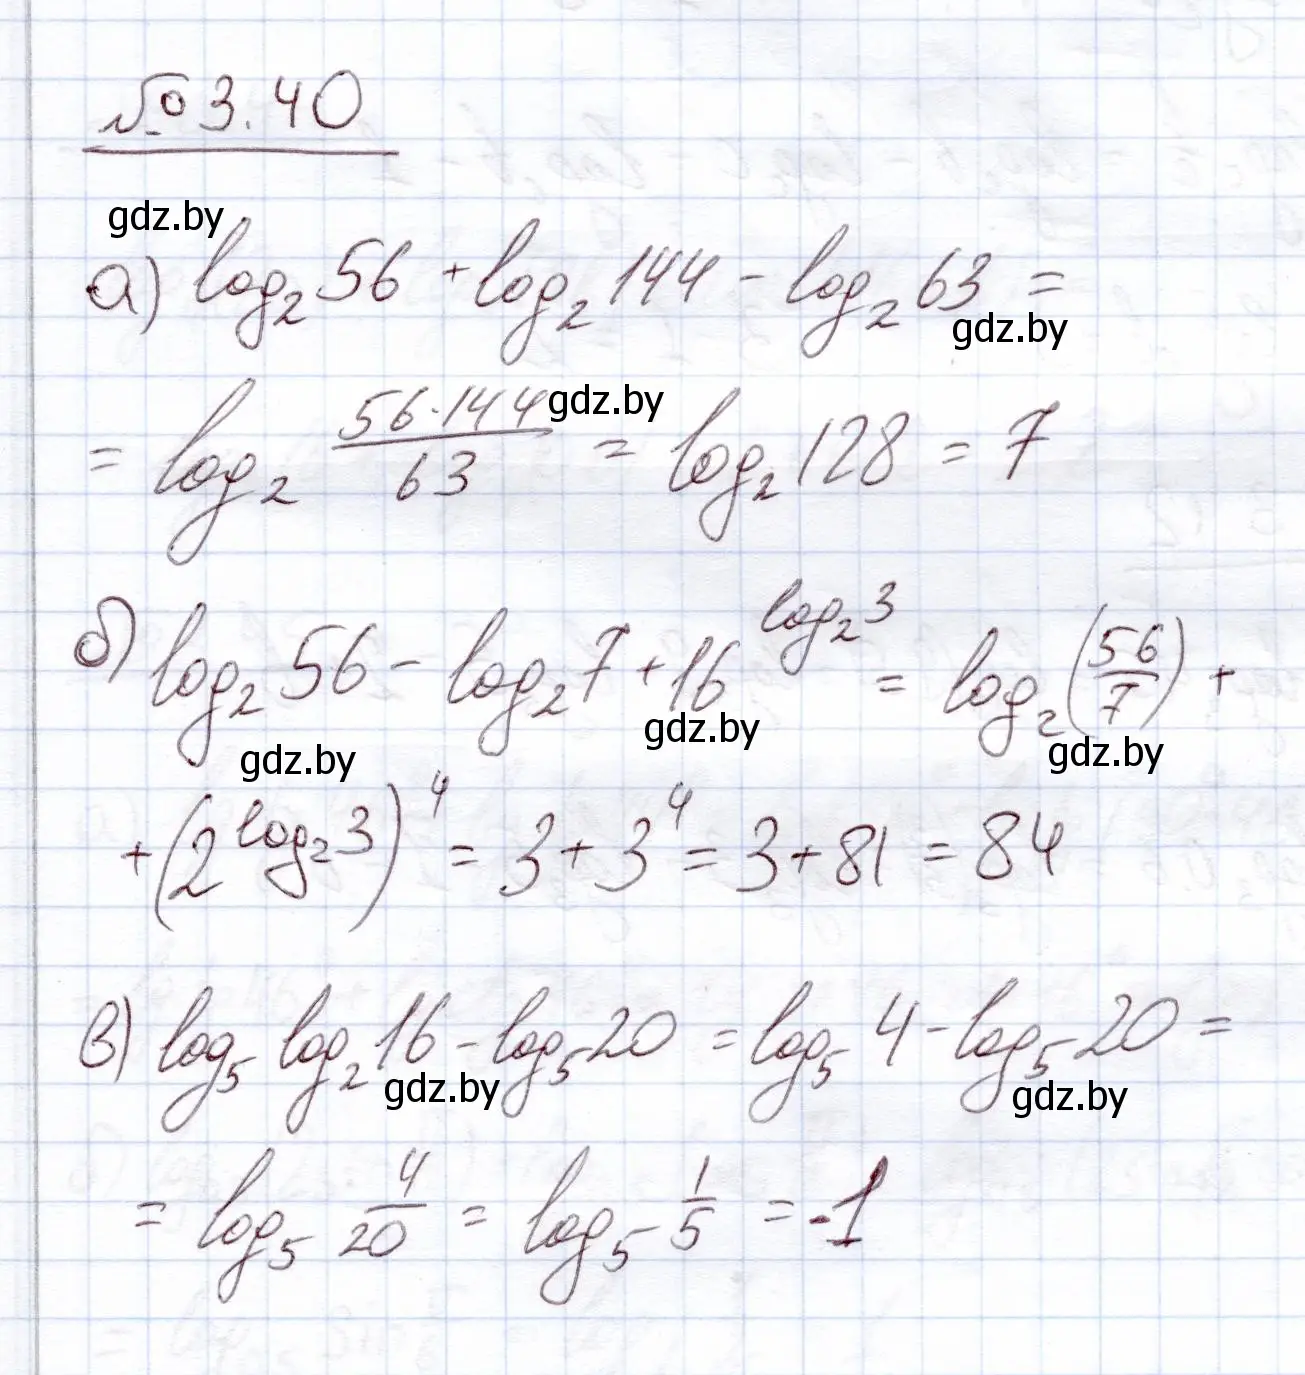 № 3.40
gdz.by
а) log₂ 56 + log₂ 144 - log₂ 63 =
gdz.by
= log₂ (56·144)/63 = log₂ 128 = 7
gdz.by
б) log₂ 56 - log₂ 7 + 16^(log₂ 3) = log₂ (56/7) +
gdz.by gdz.by gdz.by
+ (2^(log₂ 3))⁴ = 3 + 3⁴ = 3 + 81 = 84
в) log₅ log₂ 16 - log₅ 20 = log₅ 4 - log₅ 20 =
gdz.by gdz.by
= log₅ 4/20 = log₅ 1/5 = -1